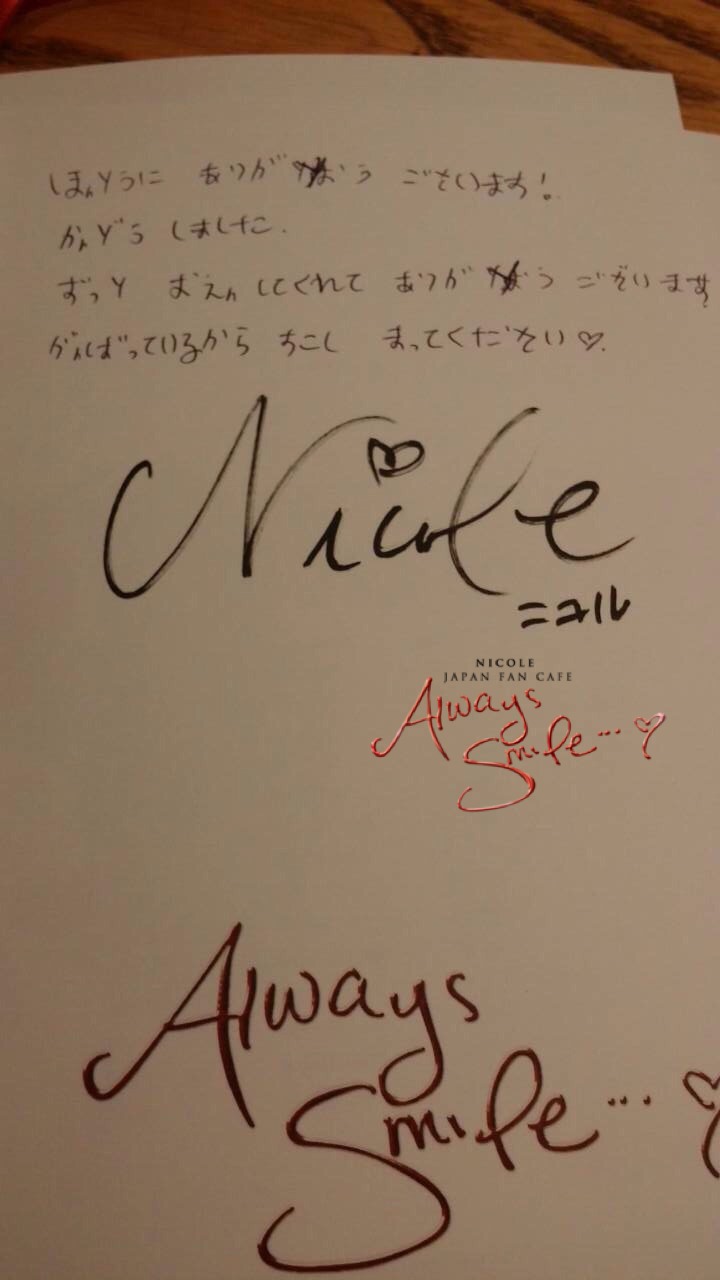 ほんとうに ありがとう ございます!
かんどう しました.
ずっと おえん してくれて ありがとう ございます
がんばっているから すこし まってください♡.
Nicole
ニコル
NICOLE
JAPAN FAN CAFE
Always
Smile...♡
Always
Smile...♡